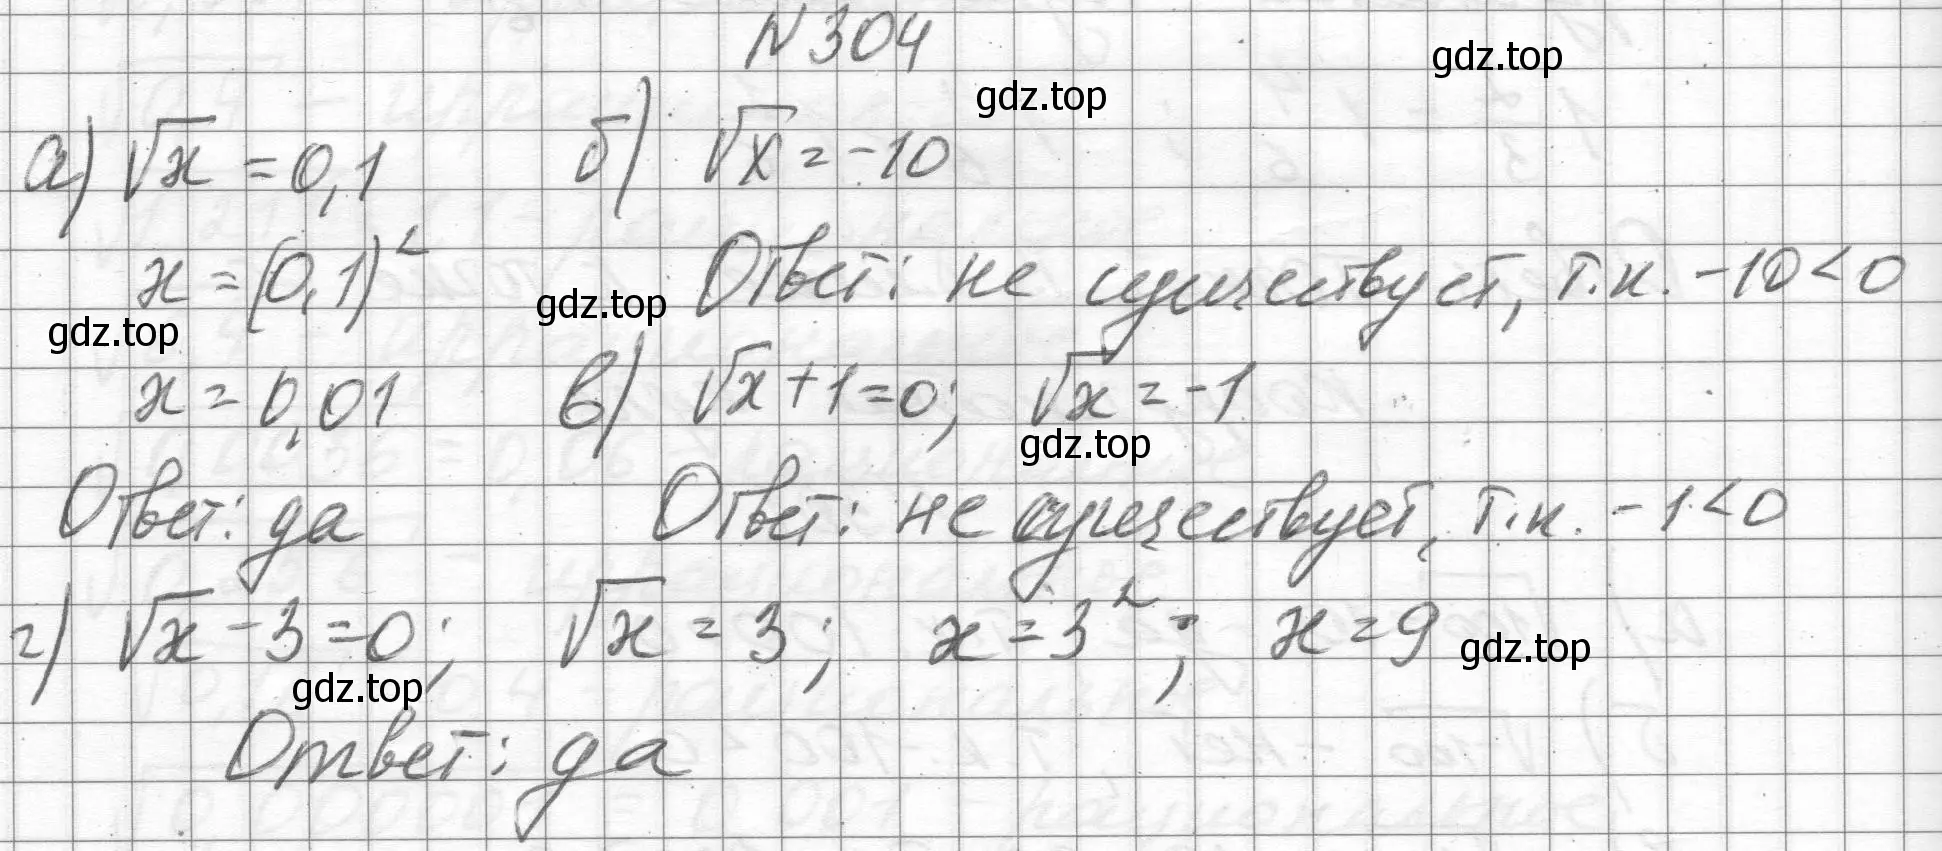 N 304
gdz.top
gdz.top
а) √x = 0,1
б) √x = -10
x = (0,1)²
Ответ: не существует, т.к. -10 < 0
gdz.top
gdz.top
x = 0,01
в) √x + 1 = 0; √x = -1
gdz.top
Ответ: да
Ответ: не существует, т.к. -1 < 0
г) √x - 3 = 0; √x = 3; x = 3²; x = 9
gdz.top
gdz.top
Ответ: да